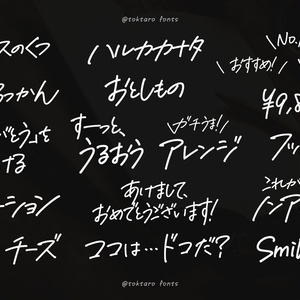 @toktaro fonts
スのくつ
ハルカカナタ
No.
＼おすすめ！／
おとしもの
っかん
¥9,8
すーっと、
うるおう
＼ガチうま！／
アレンジ
とう」を
ける
フッ
あけまして、
おめでとうございます！
ーション
これが
ノンア
チーズ
ココは…ドコだ？
Smil
@toktaro fonts